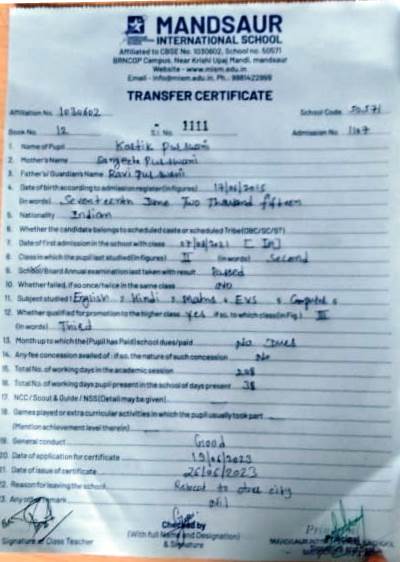 MANDSAUR
INTERNATIONAL SCHOOL
Affiliated to CBSE No. 1030602, School no. 50571
BRNCOP Campus, Near Krishi Upaj Mandi, mandsaur
Website - www.mism.edu.in
Email - info@mism.edu.in, Ph.: 9981422999
TRANSFER CERTIFICATE
Affiliation No. 1030602 School Code 50571
Book No. 12 S.I. No. 1111 Admission No. 1107
1. Name of Pupil Kartik Pulswani
2. Mother's Name Sangeeta Pulswani
3. Father's/Guardian's Name Ravi Pulswani
4. Date of birth according to admission register (in figures) 17/06/2015
(In words) Seventeenth June Two Thousand fifteen
5. Nationality Indian
6. Whether the candidate belongs to scheduled caste or scheduled Tribe (OBC/SC/ST)
7. Date of first admission in the school with class 07/08/2021 [
8. Class in which the pupil last studied (in figures) II (in words) Second
9. School/Board Annual examination last taken with result Passed
10. Whether failed, if so once/twice in the same class NO
11. Subject studied English, Hindi, Maths, EVS, Computer
12. Whether qualified for promotion to the higher class yes if so, to which class (in Fig.) III
(In words) Third
13. Month up to which the (Pupil has Paid) school dues/paid No Dues
14. Any fee concession availed of: if so, the nature of such concession No
15. Total No. of working days in the academic session 208
16. Total No. of working days pupil present in the school of days present 38
17. NCC/Scout & Guide / NSS (Detail may be given)
18. Games played or extra curricular activities in which the pupil usually took part
(Mention achievement level therein)
19. General conduct Good
20. Date of application for certificate 19/06/2023
21. Date of issue of certificate 26/06/2023
22. Reason for leaving the school city
23. Any other remark Nil
Signature of Class Teacher
Checked by
(With full Name and Designation)
& Signature